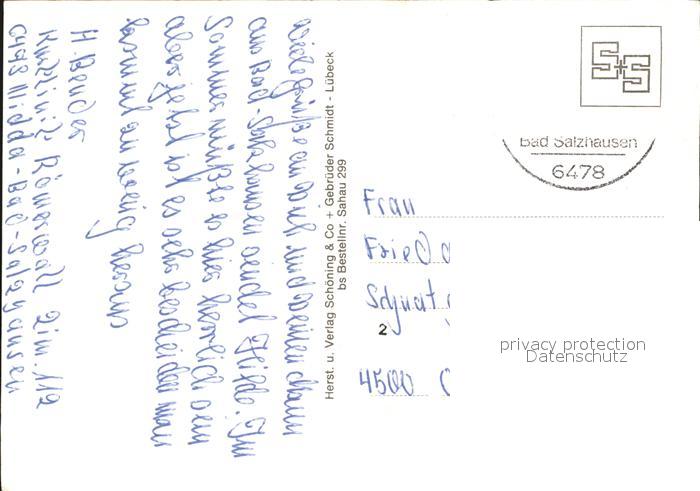 Viele Grüße an Dich und Deinen Mann
aus Bad-Salzhausen sendet Hilde. Im
Sommer müßte es hier herrlich sein
aber jetzt ist es sehr bescheiden man
kommt zu wenig herum
H. Bender
Kurklinik Römerwall Zim. 112
6478 Nidda-Bad-Salzhausen
Herst. u. Verlag Schöning & Co + Gebrüder Schmidt - Lübeck
bs Bestellnr. Sahau 299
S+S
Bad Salzhausen
6478
Frau
Fried
Schwat
2
4500
privacy protection
Datenschutz